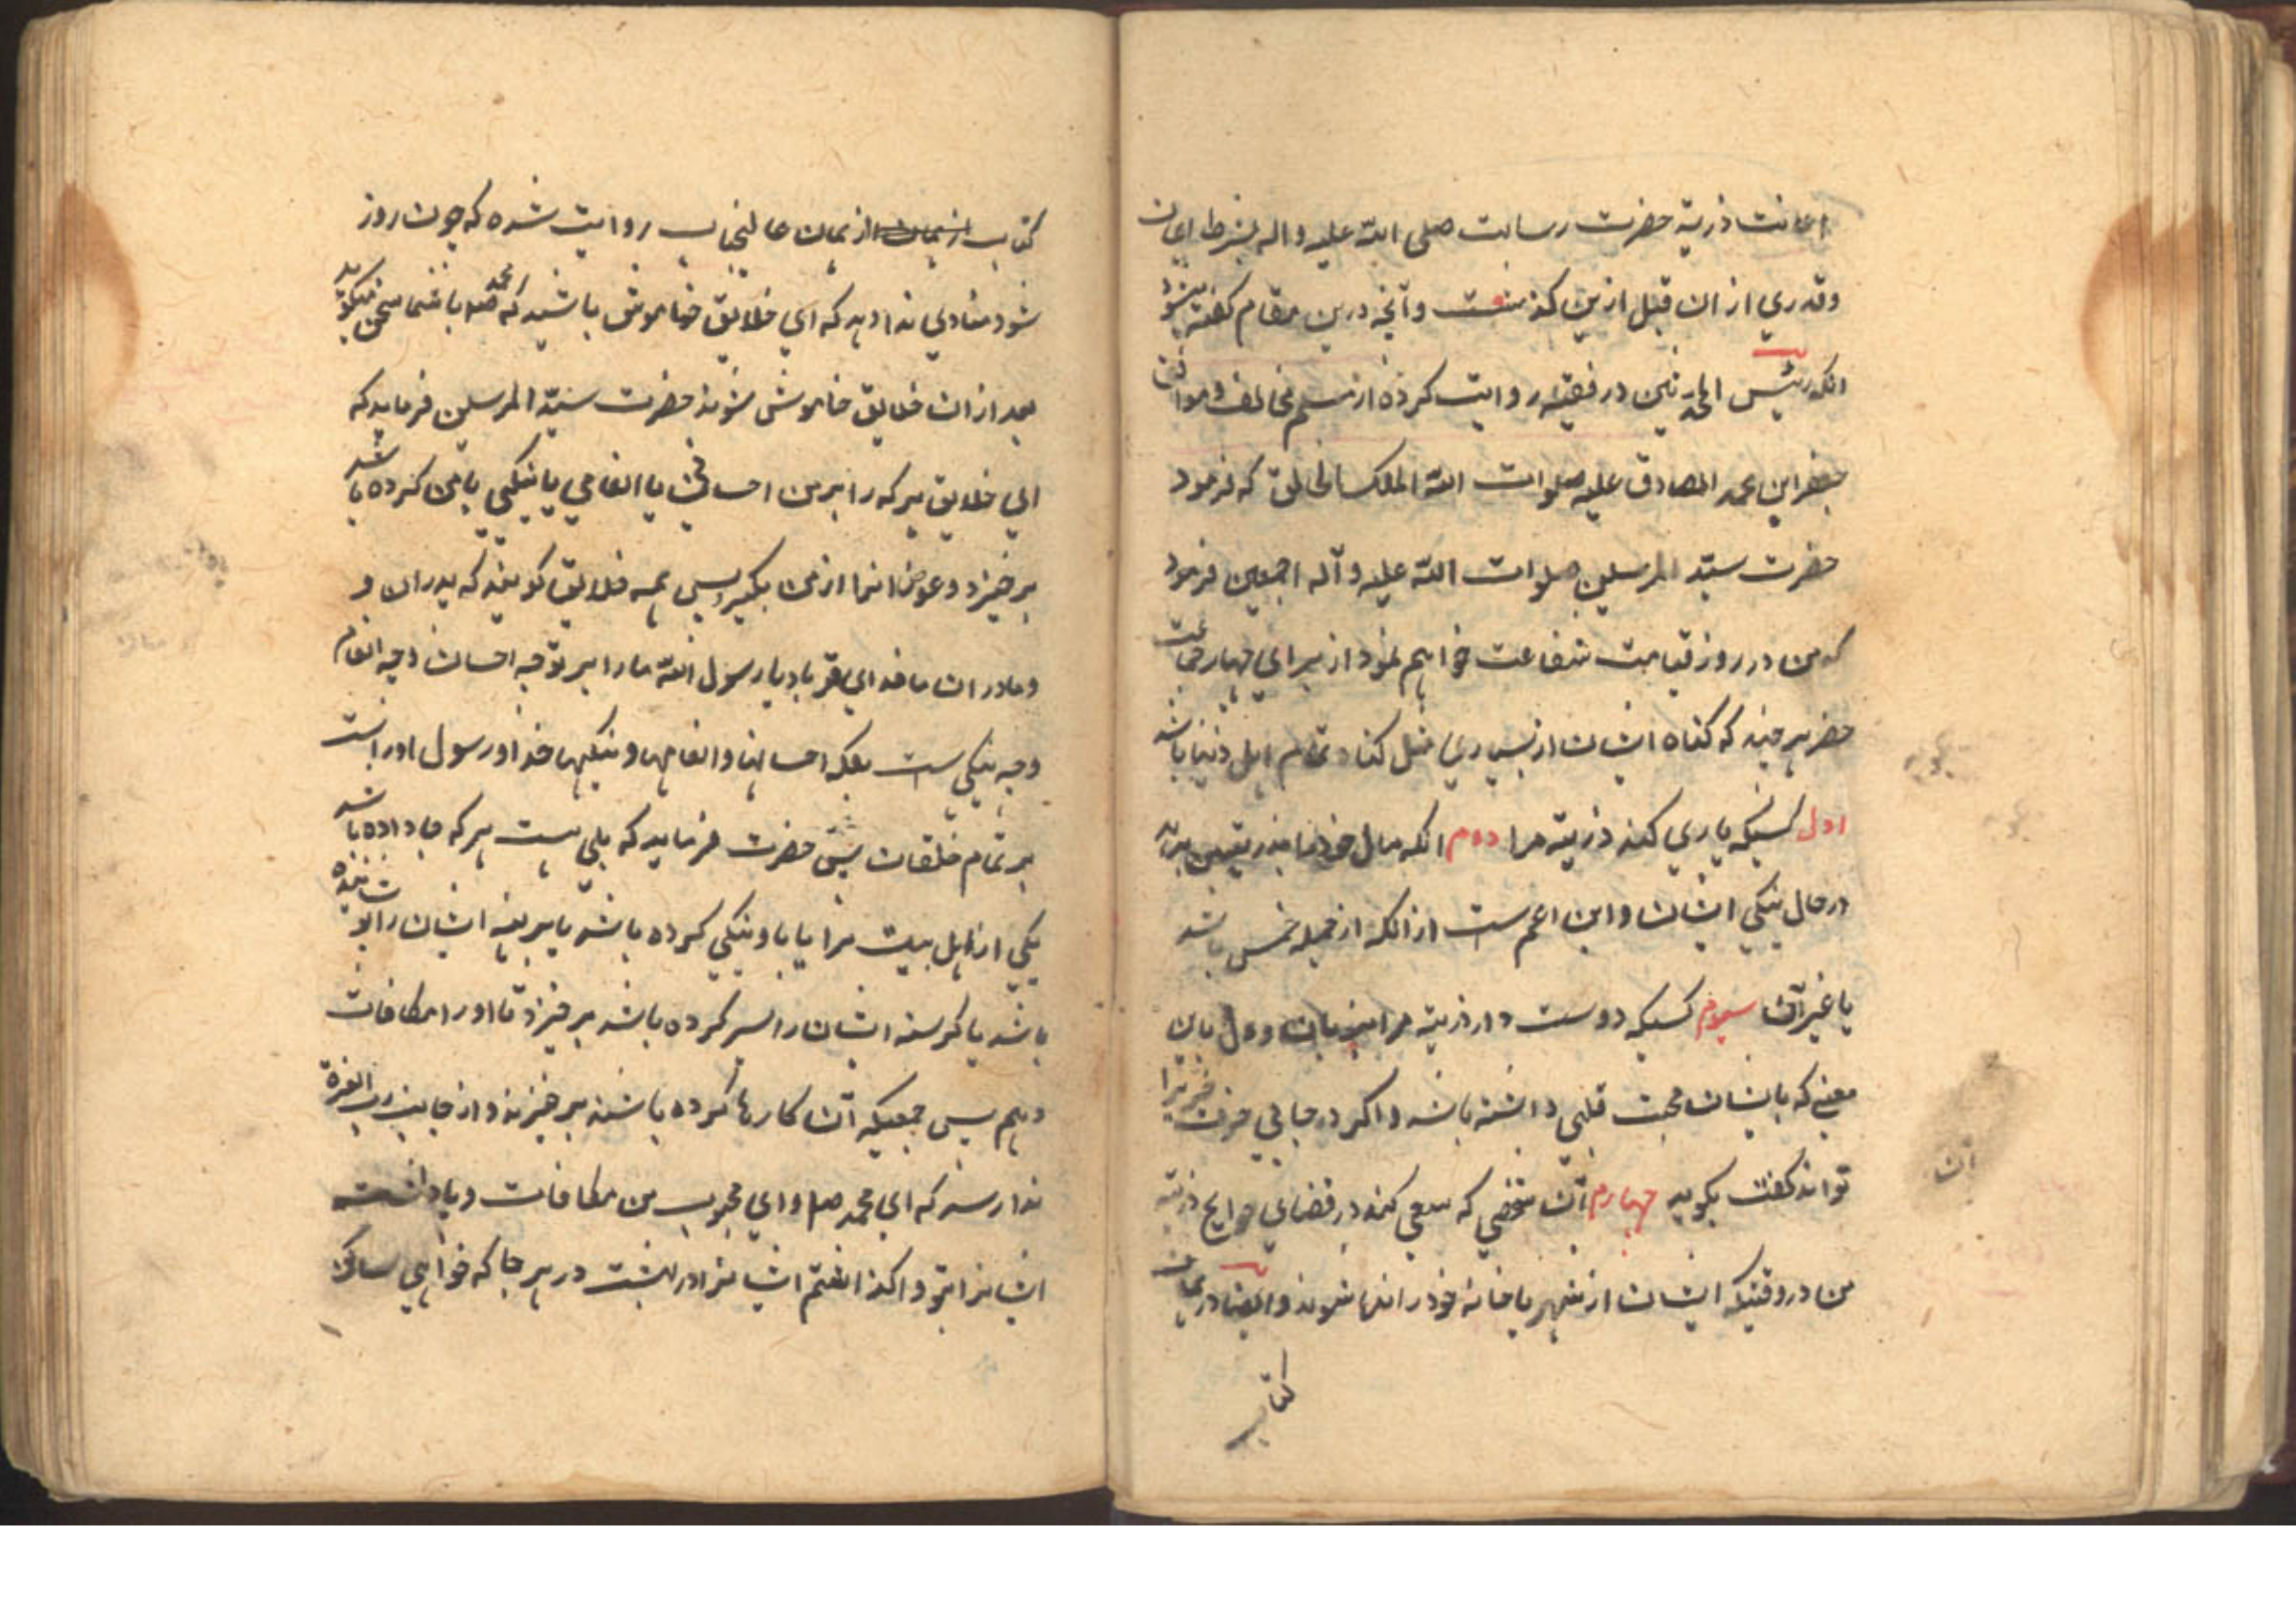 اعانت ذریة حضرت رسالت صلی الله علیه واله بشرط ایمان
وقدری از ان قبل ازین کذشت وآنچه درین مقام کفته میشود
انکه رئیس المحدثین در فقیه روایت کرده از مسلم مخالف وموافق
جعفر ابن محمد الصادق علیه صلوات الله الملک الخالق که فرمود
حضرت سیّد المرسلین صلوات الله علیه وآله اجمعین فرمود
که من در روز قیامت شفاعت خواهم نمود از برای چهار جماعت
هر چند که کناه ایشان از بسیاری مثل کناه تمام اهل دنیا باشد
اول کسیکه یاری کند ذریة مرا دوم انکه مال خود را بذریة من بدهد
در حال تنکی ایشان واین اعم ست از انکه از جمله خمس باشد
یا غیر آن سیوم کسیکه دوست دارد ذریة مرا بزبان ودل یان
معنی که بایشان محبت قلبی داشته باشد واکر در جائی حرف خیریرا
تواند کفت بکوید چهارم آن شخصی که سعی کند در قضای حوایج ذریة
من در وقتیکه ایشان از شهر یا خانه خود رانده شوند وایضا در همان
کتاب
کتاب از همان عالیجناب روایت شده که چون روز
شود منادی ندا دهد که ای خلایق خاموش باشید که محمد صلعم با شما سخن میکوید
بعد از ان خلایق خاموش شوند حضرت سیّد المرسلین فرماید که
ای خلایق هر که را بر من احسانی یا انعامی یا نیکیی با من کرده باشد
بر خیزد وعوض انها از من بکیرد پس همه خلایق کویند که پدران و
ومادران ما فدای تو باد یا رسول الله ما را بر تو چه احسان وچه انعام
وچه نیکی ست بلکه احسانها وانعامها ونیکیها خدا ورسول او راست
بر تمام خلقات پس حضرت فرماید که بلی هست هر که جا داده باشد
یکی از اهل بیت مرا یا باو نیکی کرده باشد یا برهنه ایشان را پوشانیده
باشد یا کرسنه ایشان را سیر کرده باشد بر خیزد تا او را مکافات
دهم پس جمعیکه آن کارها کرده باشند بر خیزند واز جانب رب العزة
ندا رسد که ای محمد صلعم وای محبوب من مکافات وپاداشت
ایشانرا بتو واکذاشتم ایشانرا در بهشت در هر جا که خواهی ساکن
آن